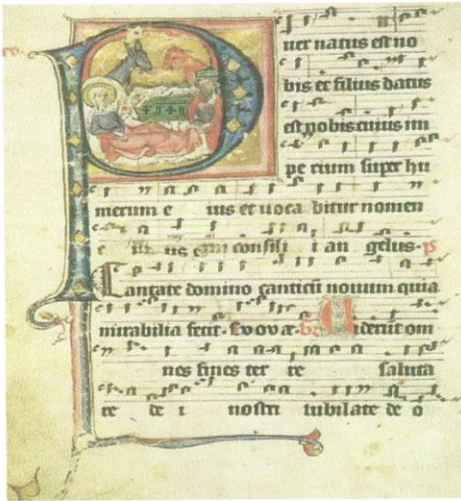 uer natus est no
bis et filius datus
est nobis cuius im
pe rium super hu
merum e ius et uoca bitur nomen
e ius consili i an gelus. p
Cantate domino canticū nouum quia
mirabilia fecit. Euouae. Uiderūt om
nes fines ter re saluta
re de i nostri iubilate de o